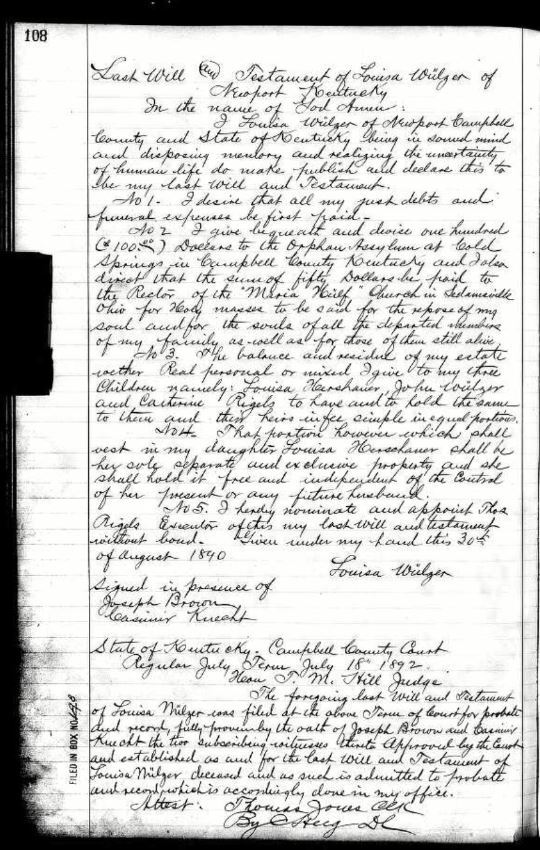 108
Last Will and Testament of Louisa Wülzer of
Newport Kentucky
In the name of God Amen:
I Louisa Wülzer of Newport Campbell
County and State of Kentucky being in sound mind
and disposing memory and realizing the uncertainty
of human life do make publish and declare this to
be my last will and Testament.
No 1- I desire that all my just debts and
funeral expenses be first paid-
No 2 I give bequeath and devise one hundred
($100.00) Dollars to the Orphan Assylum at Cold
Springs in Campbell County Kentucky and I also
direct that the sum of fifty Dollars be paid to
the Rector of the "Maria Hilf" Church in Sedamsville
Ohio for Holy masses to be said for the repose of my
soul and for the souls of all the departed members
of my family as well as for those of them still alive,
No 3. The balance and residue of my estate
wether Real personal or mixed I give to my three
Children namely: Louisa Herschauer, John Wülzer
and Catherine Rigels to have and to hold the same
to them and their heirs in fee simple in equal portions.
No 4. That portion however which shall
vest in my daughter Louisa Herschauer shall be
her sole separate and exclusive property and she
shall hold it free and independent of the Control
of her present or any future husband.
No 5. I hereby nominate and appoint Thos
Rigels Executor of this my last will and testament
without bond. Given under my hand this 30th
of August 1890
Louisa Wülzer
Signed in presence of
Joseph Brown
Casimir Knecht
State of Kentucky - Campbell County Court
Regular July Term July 18th 1892.
Hon T. M. Hill Judge
The foregoing last Will and Testament
of Louisa Wülzer was filed at the above Term of Court for probate
and record, fully proven by the oath of Joseph Brown and Casimir
Knecht the two subscribing witnesses thereto Approved by the Court
and established as and for the last Will and Testament of
Louisa Wülzer, deceased and as such is admitted to probate
and record, which is accordingly done in my office.
Attest: Thomas Jones Clk
By DC
FILED IN BOX NO.